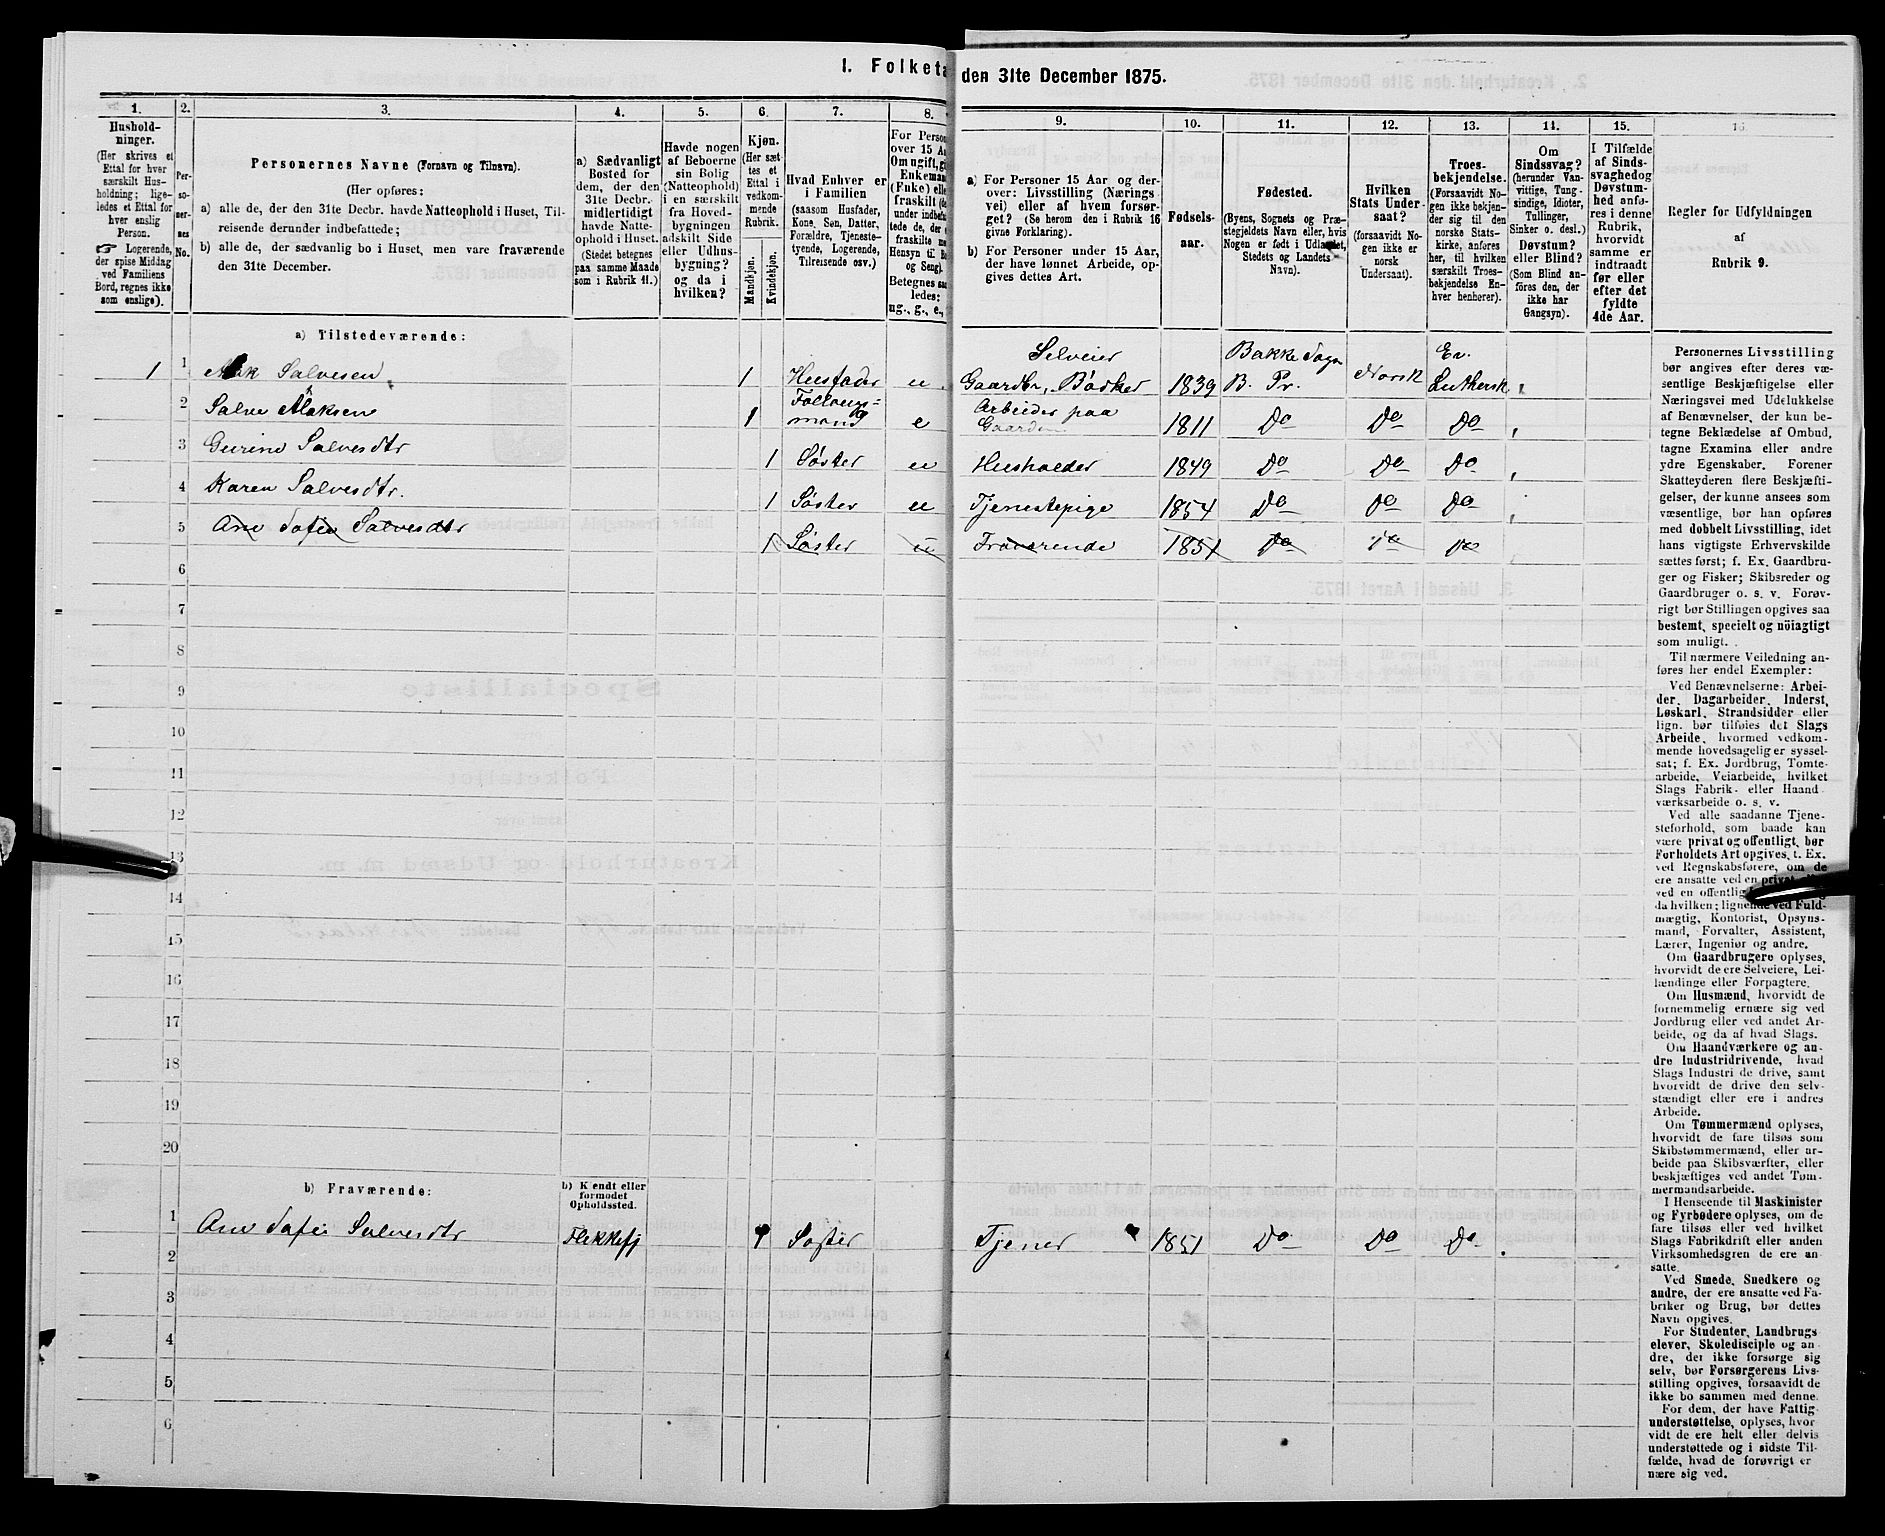 I. Folketæ
den 31te December 1875.
1.
2.
3.
4.
5.
6.
7.
8.
9.
10.
11.
12.
13.
14.
15.
16.
Hushold-
ninger.
(Her skrives et
Ettal for hver
særskilt Hus-
holdning; lige-
ledes et Ettal for
hver enslig
Person.
☞ Logerende,
der spise Middag
ved Familiens
Bord, regnes ikke
som enslige).
Per-
so-
ner-
nes
No.
Personernes Navne (Fornavn og Tilnavn).
(Her opføres:
a) alle de, der den 31te Decbr. havde Natteophold i Huset, Til-
reisende derunder indbefattede;
b) alle de, der sædvanlig bo i Huset, men vare fraværende
den 31te December.
a) Sædvanligt
Bosted for
dem, der den
31te Decbr.
midlertidigt
havde Natte-
ophold i Huset.
(Stedet betegnes
paa samme Maade
som i Rubrik 11.)
Havde nogen
af Beboerne
sin Bolig
(Natteophold)
i en særskilt
fra Hoved-
bygningen
adskilt Side
eller Udhus-
bygning?
og da i
hvilken?
Kjøn.
(Her sæt-
tes et
Ettal i
vedkom-
mende
Rubrik.
Mandkjøn.
Kvindekjøn.
Hvad Enhver er
i Familien
(saasom Husfader,
Kone, Søn, Datter,
Forældre, Tjeneste-
tyende, Logerende,
Tilreisende osv.)
For Person
over 15 A
Om ugift, gi
Enkeman
(Fuke) elle
fraskilt (de
under indbefa
tede de, der e
fraskilte m
Hensyn til Bo
og Seng).
Betegnes saa
ledes:
ug., g., e.,
a) For Personer 15 Aar og der-
over: Livsstilling (Nærings
vei) eller af hvem forsør-
get? (Se herom den i Rubrik 16
givne Forklaring).
b) For Personer under 15 Aar,
der have lønnet Arbeide, op-
gives dettes Art.
Fødsels-
aar.
Fødested.
(Byens, Sognets og Præ-
stegjeldets Navn eller, hvis
Nogen er født i Udlandet,
Stedets og Landets
Navn).
Hvilken
Stats Under-
saat?
(forsaavidt No-
gen ikke er
norsk
Undersaat).
Troes-
bekjendelse.
(Forsaavidt No-
gen ikke bekjen-
der sig til den
norske Stats-
kirke, anføres
her, til hvilken
særskilt Troes-
bekjendelse En-
hver henhører).
Om
Sindssvag?
(herunder Van-
vittige, Tung-
sindige, Idioter,
Tullinger,
Sinker o. desl.)
Døvstum?
eller Blind?
(Som Blind an-
føres den, der
ikke har
Gangsyn).
I Tilfælde
af Sinds-
svaghed og
Døvstum-
hed anfø-
res i denne
Rubrik,
hvorvidt
samme er
indtraadt
før eller
efter det
fyldte
4de Aar.
Regler for Udfyldningen
af
Rubrik 9.
a) Tilstedeværende:
1 1 Aak Salvesen 1 Husfader u Selveier Gaardbr, Bødker 1839 Bakke Sogn B. Pr. Norsk Ev. Luthersk
2 Salve Aaksen 1 Følloug= mand e Arbeider paa Gaarden 1811 Do Do Do
3 Gurine Salvesdtr 1 Søster u Husholder 1849 Do Do Do
4 Karen Salvesdtr. 1 Søster u Tjenestepige 1854 Do Do Do
5 Ane Sofie Salvesdtr 1 Søster u Fraverende 1851 Do Do Do
6
7
8
9
10
11
12
13
14
15
16
17
18
19
20
b) Fraværende:
b) Kendt eller
formodet
Opholdssted.
1 Ane Sofie Salvesdtr Flekkefj 1 Søster Tjener 1851 Do Do Do
2
3
4
5
6
Personernes Livsstilling
bør angives efter deres væ-
sentlige Beskjæftigelse eller
Næringsvei med Udelukkelse
af Benævnelser, der kun be-
tegne Beklædelse af Ombud,
tagne Examina eller andre
ydre Egenskaber. Forener
Skatteyderen flere Beskjæfti-
gelser, der kunne ansees som
væsentlige, bør han opføres
med dobbelt Livsstilling, idet
hans vigtigste Erhvervskilde
sættes først; f. Ex. Gaardbru-
ger og Fisker; Skibsreder og
Gaardbruger o. s. v. Forøv-
rigt bør Stillingen opgives saa
bestemt, specielt og nöiagtigt
som muligt.
Til nærmere Veiledning an-
føres her endel Exempler:
Ved Benævnelserne: Arbei-
der, Dagarbeider, Inderst,
Løskarl, Strandsidder eller
lign. bør tilføies det Slags
Arbeide, hvormed vedkom-
mende hovedsagelig er syssel-
sat; f. Ex. Jordbrug, Tomte-
arbeide, Veiarbeide, hvilket
Slags Fabrik- eller Haand
værksarbeide o. s. v.
Ved alle saadanne Tjene-
steforhold, som baade kan
være privat og offentligt, bør
Forholdets Art opgives, t. Ex.
ved Regnskabsførere, om de
ere ansatte ved en privat
ved en offentlig
da hvilken; lignende ved Fuld-
mægtig, Kontorist, Opsyns-
mand, Forvalter, Assistent,
Lærer, Ingeniør og andre.
Om Gaardbrugere oplyses,
hvorvidt de ere Selveiere, Lei-
lændinge eller Forpagtere.
Om Husmænd, hvorvidt de
fornemmelig ernære sig ved
Jordbrug eller ved andet Ar-
beide, og da af hvad Slags.
Om Haandværkere og an-
dre Industridrivende, hvad
Slags Industri de drive, samt
hvorvidt de drive den selv-
stændigt eller ere i andres
Arbeide.
Om Tømmermænd oplyses,
hvorvidt de fare tilsøs som
Skibstømmermænd, eller ar-
beide paa Skibsværfter, eller
beskjæftiges ved andet Tøm-
mermandsarbeide.
I Henseende til Maskinister
og Fyrbødere oplyses, om de
fare tilsøs eller ved hvilket
Slags Fabrikdrift eller anden
Virksomhedsgren de ere an-
satte.
Ved Smede, Snedkere og
andre, der ere ansatte ved Fa-
briker og Brug, bør dettes
Navn opgives.
For Studenter, Landbrugs
elever, Skoledisciple og an-
dre, der ikke forsørge sig
selv, bør Forsørgerens Livs-
stilling opgives, forsaavidt de
ikke bo sammen med denne.
For dem, der have Fattig
understøttelse, oplyses, hvor
vidt de ere helt eller delvis
understøttede og i sidste Til-
fælde, hvad de forøvrigt er
nære sig ved.